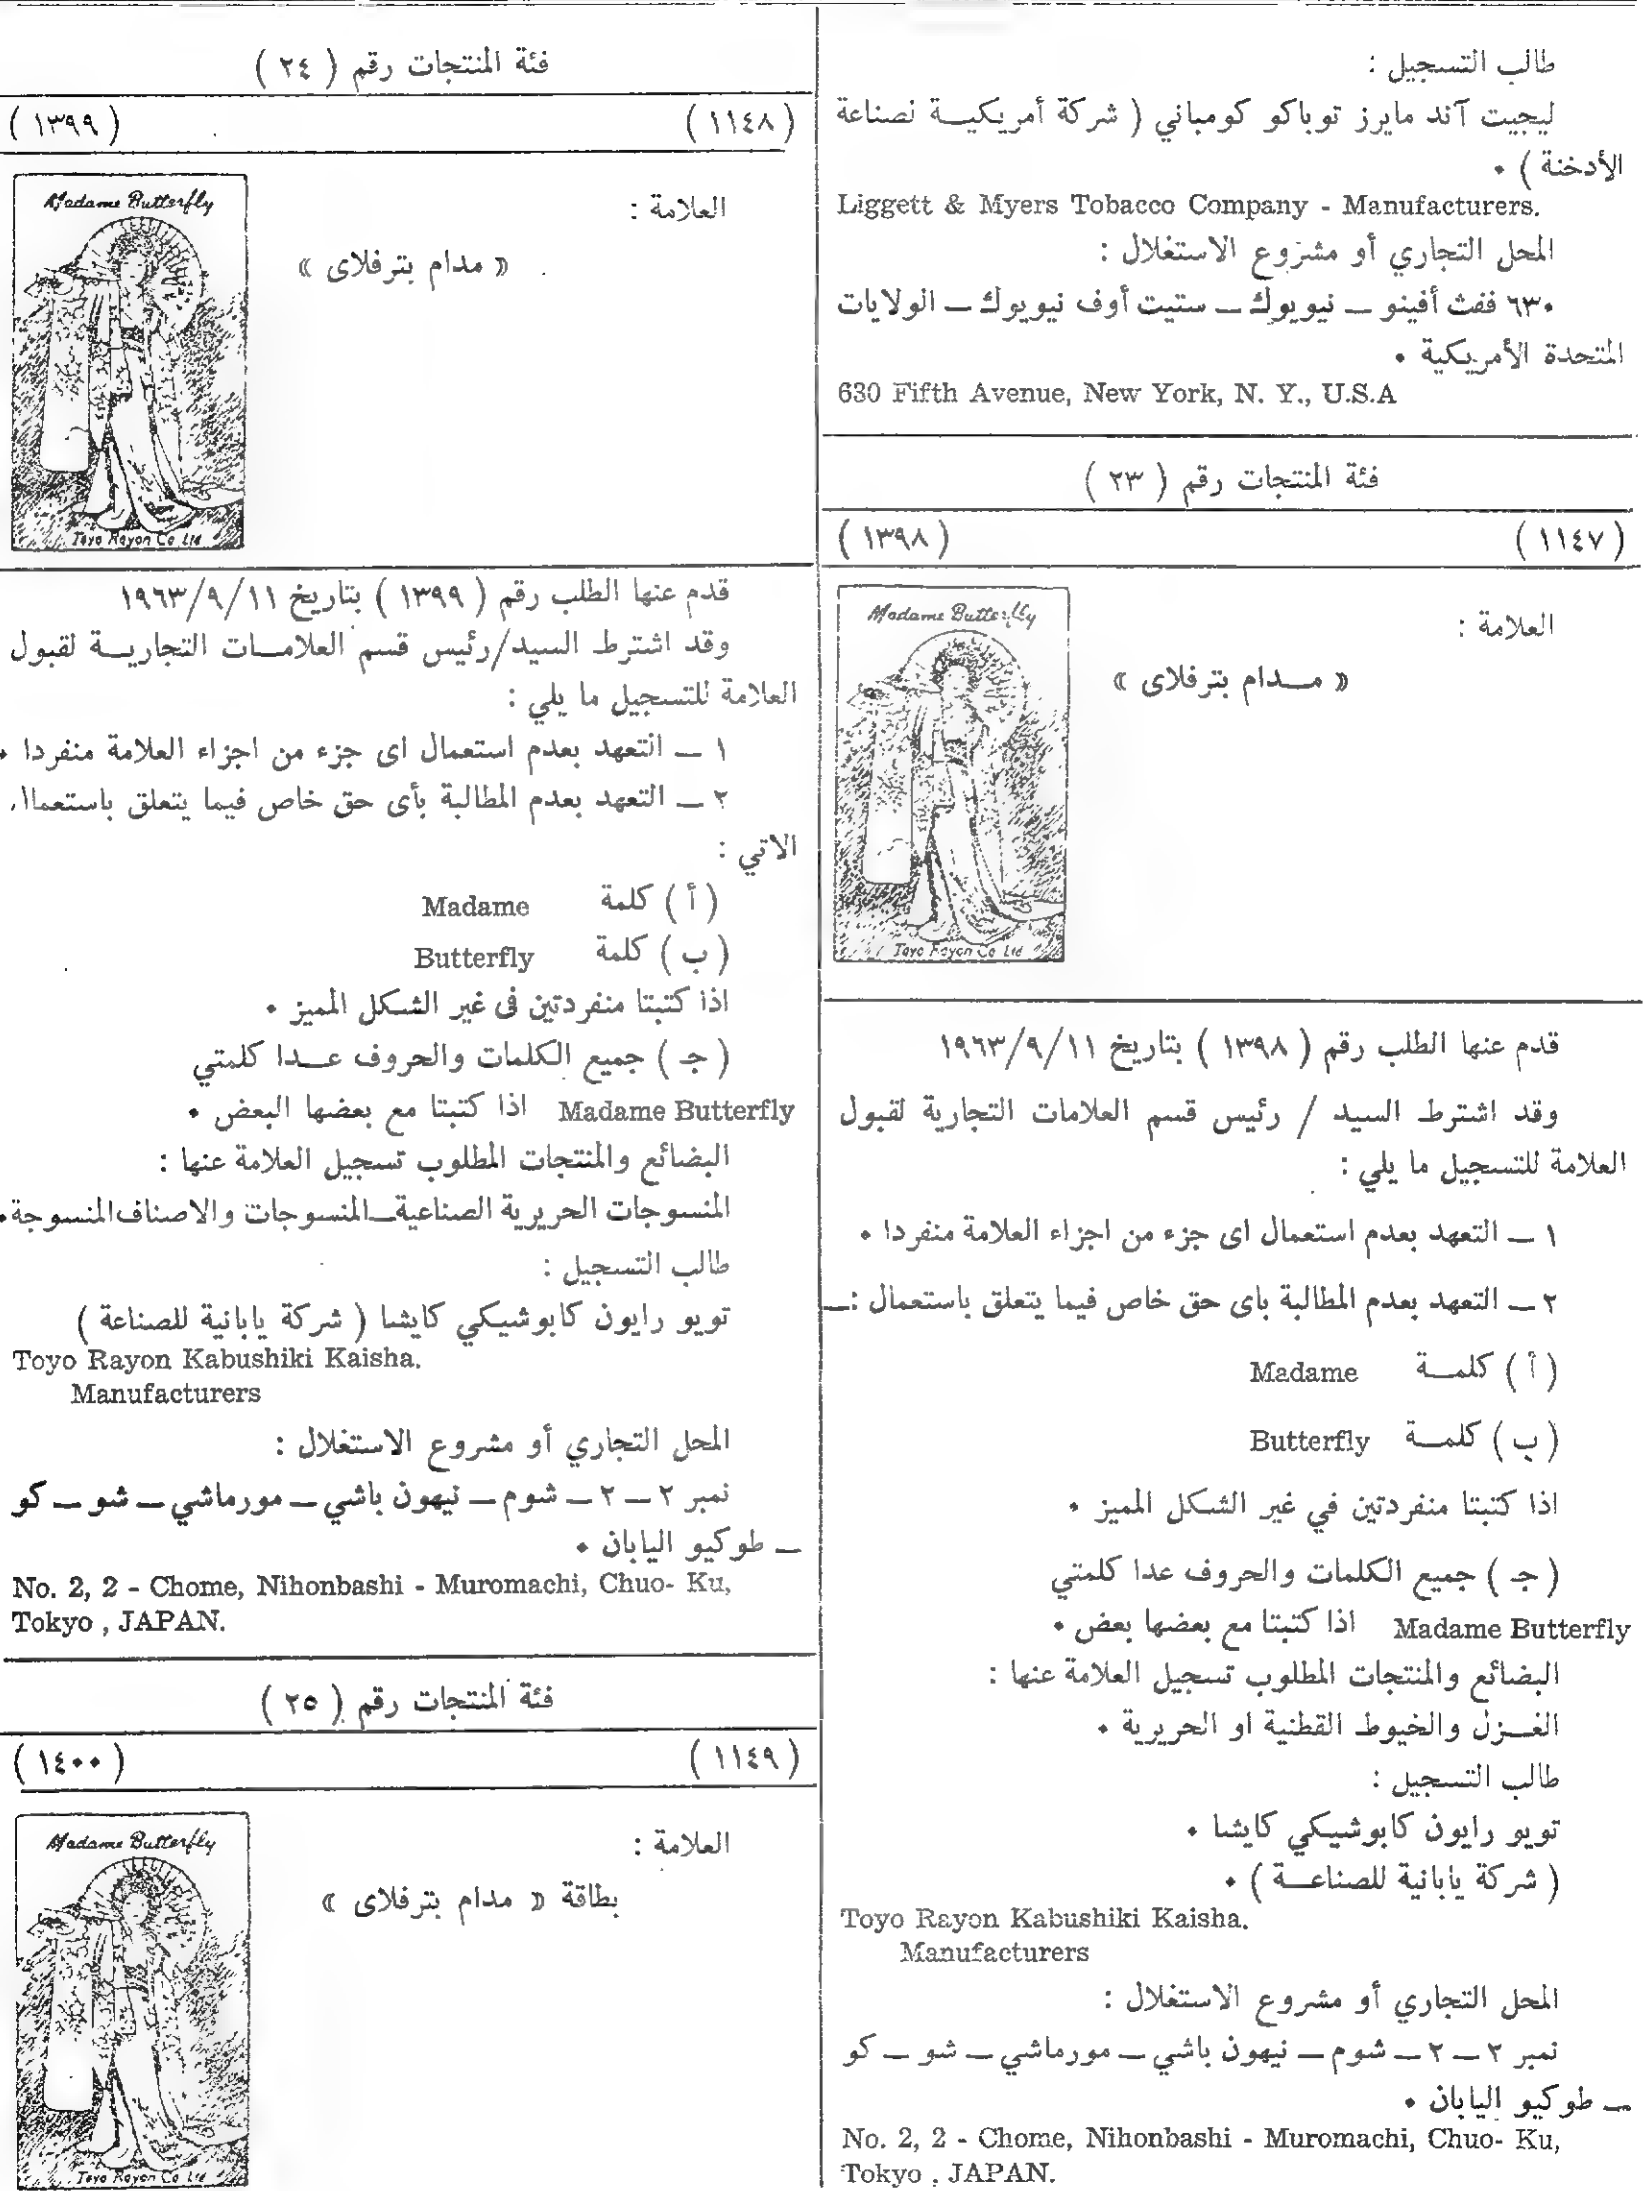 طالب التسجيل :
ليجيت آند مايرز توباكو كومباني ( شركة أمريكيـة لصناعة
الأدخنة ) •
Liggett & Myers Tobacco Company - Manufacturers.
المحل التجاري أو مشروع الاستغلال :
٦٣٠ ففث أفينو ــ نيويوك ــ ستيت أوف نيويورك ــ الولايات
المتحدة الأمريكية •
630 Fifth Avenue, New York, N. Y., U.S.A
فئة المنتجات رقم ( ٢٣ )
( ١١٤٧ ) ( ١٣٩٨ )
العلامة :
« مــدام بترفلاى »
Madame Butterfly
Toyo Rayon Co Ltd
قدم عنها الطلب رقم ( ١٣٩٨ ) بتاريخ ١٩٦٣/٩/١١
وقد اشترط السيد / رئيس قسم العلامات التجارية لقبول
العلامة للتسجيل ما يلي :
١ ــ التعهد بعدم استعمال اى جزء من اجزاء العلامة منفردا •
٢ ــ التعهد بعدم المطالبة باى حق خاص فيما يتعلق باستعمال :ــ
( أ ) كلمــة Madame
( ب ) كلمــة Butterfly
اذا كتبتا منفردتين في غير الشكل المميز •
( جـ ) جميع الكلمات والحروف عدا كلمتي
Madame Butterfly اذا كتبتا مع بعضها بعض •
البضائع والمنتجات المطلوب تسجيل العلامة عنها :
الغــزل والخيوط القطنية او الحريرية •
طالب التسجيل :
تويو رايون كابوشيكي كايشا •
( شركة يابانية للصناعــة ) •
Toyo Rayon Kabushiki Kaisha.
Manufacturers
المحل التجاري أو مشروع الاستغلال :
نمبر ٢ ــ ٢ ــ شوم ــ نيهون باشي ــ مورماشي ــ شو ــ كو
ــ طوكيو اليابان •
No. 2, 2 - Chome, Nihonbashi - Muromachi, Chuo- Ku,
Tokyo , JAPAN.
فئة المنتجات رقم ( ٢٤ )
( ١١٤٨ ) ( ١٣٩٩ )
العلامة :
« مدام بترفلاى »
Madame Butterfly
Toyo Rayon Co Ltd
قدم عنها الطلب رقم ( ١٣٩٩ ) بتاريخ ١٩٦٣/٩/١١
وقد اشترط السيد/رئيس قسم العلامــات التجاريــة لقبول
العلامة للتسجيل ما يلي :
١ ــ التعهد بعدم استعمال اى جزء من اجزاء العلامة منفردا •
٢ ــ التعهد بعدم المطالبة بأى حق خاص فيما يتعلق باستعمال
الاتي :
( أ ) كلمة Madame
( ب ) كلمة Butterfly
اذا كتبتا منفردتين فى غير الشكل المميز •
( جـ ) جميع الكلمات والحروف عــدا كلمتي
Madame Butterfly اذا كتبتا مع بعضها البعض •
البضائع والمنتجات المطلوب تسجيل العلامة عنها :
المنسوجات الحريرية الصناعية ــ المنسوجات والاصناف المنسوجة•
طالب التسجيل :
تويو رايون كابوشيكي كايشا ( شركة يابانية للصناعة )
Toyo Rayon Kabushiki Kaisha.
Manufacturers
المحل التجاري أو مشروع الاستغلال :
نمبر ٢ ــ ٢ ــ شوم ــ نيهون باشي ــ مورماشي ــ شو ــ كو
ــ طوكيو اليابان •
No. 2, 2 - Chome, Nihonbashi - Muromachi, Chuo- Ku,
Tokyo , JAPAN.
فئة المنتجات رقم ( ٢٥ )
( ١١٤٩ ) ( ١٤٠٠ )
العلامة :
بطاقة « مدام بترفلاى »
Madame Butterfly
Toyo Rayon Co Ltd